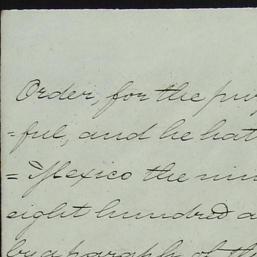 Order, for the pur
=ful, and he hat
= Mexico the nin
eight hundred a
by a paragraph of th